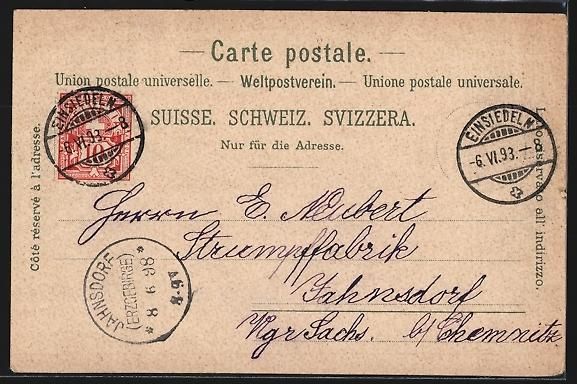 — Carte postale. —
Union postale universelle. — Weltpostverein. — Unione postale universale.
SUISSE. SCHWEIZ. SVIZZERA.
Nur für die Adresse.
Côté réservé à l'adresse.
Lato riservato all' indirizzo.
EINSIEDELN
6.VI.93.-8
10
EINSIEDELN
-6.VI.93.-8
Herrn E. Neubert
Strumpffabrik
Jahnsdorf
Kgr Sachs. b/Chemnitz
JAHNSDORF
(ERZGEBIRGE)
* 8 6 98 *
8-9V